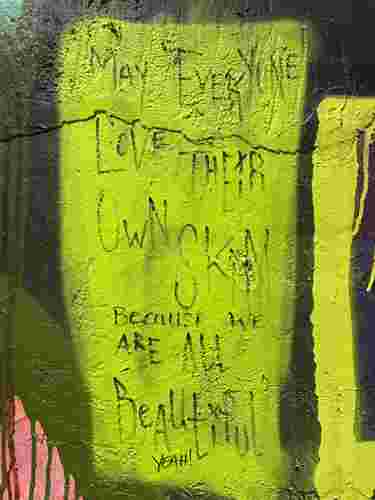 MAY EVERYONE
LOVE THEIR
OWN SKIN
BECAUSE WE
ARE ALL
BEAUTIFUL
YEAH!